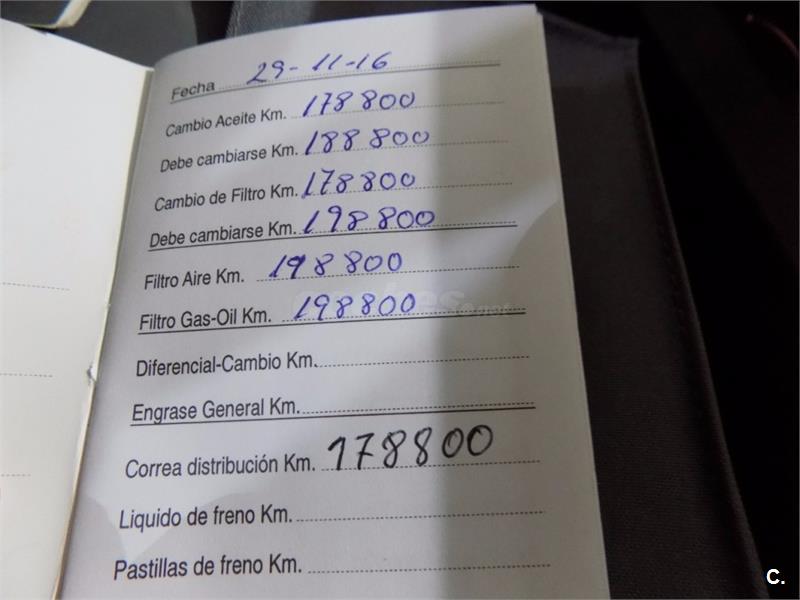 Fecha 29-11-16
Cambio Aceite Km. 178800
Debe cambiarse Km. 188800
Cambio de Filtro Km. 178800
Debe cambiarse Km. 198800
Filtro Aire Km. 198800
Filtro Gas-Oil Km. 198800
Diferencial-Cambio Km.
Engrase General Km.
Correa distribución Km. 178800
Liquido de freno Km.
Pastillas de freno Km.
C.